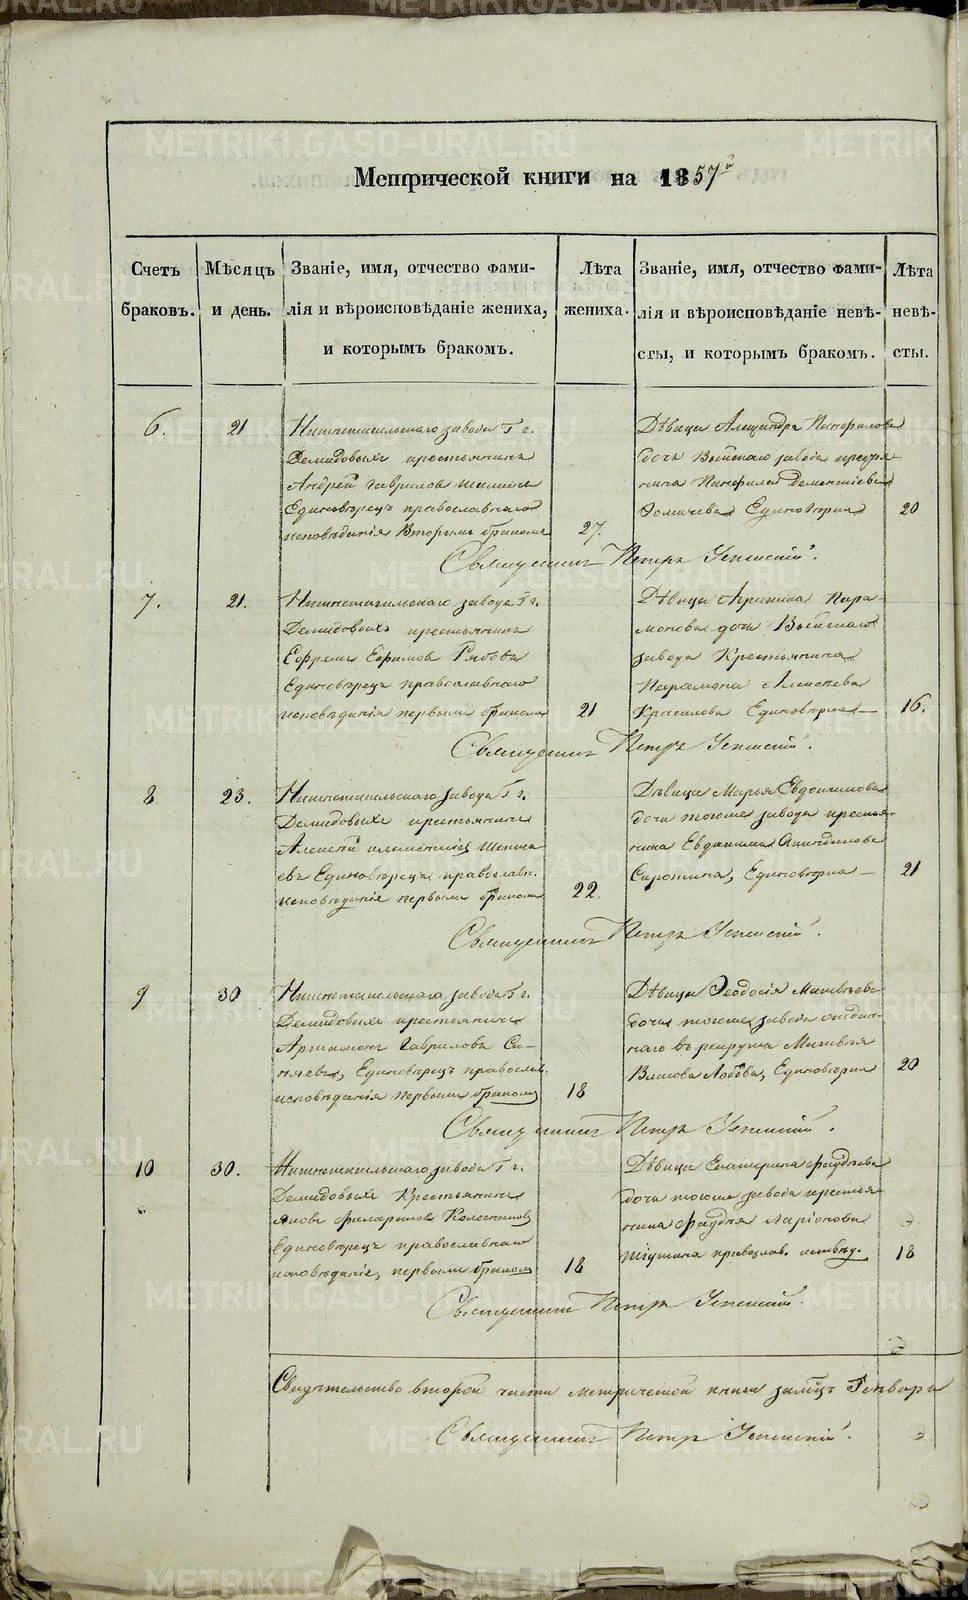 Метрической книги на 1857й
Счетъ браковъ.
Мѣсяцъ и день.
Званіе, имя, отчество фами-
лія и вѣроисповѣданіе жениха,
и которымъ бракомъ.
Лѣта жениха.
Званіе, имя, отчество фами-
лія и вѣроисповѣданіе невѣ-
сты, и которымъ бракомъ.
Лѣта невѣ-
сты.
6.
21
Нижнетагильскаго завода Г г.
Демидовыхъ крестьянинъ
Андрей Гавриловъ
Единовѣрецъ православнаго
исповѣданія Вторымъ бракомъ
27.
Дѣвица Александра Панфилова
дочь Выйскаго завода крестья-
нина Панфила Дементіева
Единовѣрка
20
Священникъ Петръ Успенскій.
7.
21.
Нижнетагильскаго завода Гг.
Демидовыхъ крестьянинъ
Ефремъ Ефимовъ Рябовъ
Единовѣрецъ православнаго
исповѣданія первымъ бракомъ
21
Дѣвица Аринина Пара-
монова дочь Выйскаго
завода Крестьянина
Парамона Алексѣева
Красилова Единовѣрка
16.
Священникъ Петръ Успенскій.
8
23.
Нижнетагильскаго завода Гг.
Демидовыхъ крестьянинъ
Алексѣй
евъ Единовѣрецъ православн.
исповѣданія первымъ бракомъ
22.
Дѣвица Марья Евдокимова
дочь тогоже завода крестья-
нина Евдокима
Сиротина, Единовѣрка
21
Священникъ Петръ Успенскій.
9
30
Нижнетагильскаго завода Гг.
Демидовыхъ крестьянинъ
Артамонъ Гавриловъ Си-
няевъ, Единовѣрецъ православ.
исповѣданія первымъ бракомъ
18
Дѣвица Ѳеодосія Матвѣева
дочь тогоже завода отдан-
наго въ рекруты Матвѣя
Власова Лобова, Единовѣрка
20
Священникъ Петръ Успенскій.
10
30.
Нижнетагильскаго завода Гг.
Демидовыхъ Крестьянинъ
Яковъ Филатовъ Колесниковъ
Единовѣрецъ православнаго
исповѣданіе, первымъ бракомъ
18
Дѣвица Екатерина Фаддѣева
дочь тогоже завода крестья-
нина Фаддея Ларіонова
православ. исповѣд.
18
Священникъ Петръ Успенскій.
Свидѣтельство второй части метрической книги за мѣцъ Генварь
Священникъ Петръ Успенскій.
METRIKI.GASO-URAL.RU